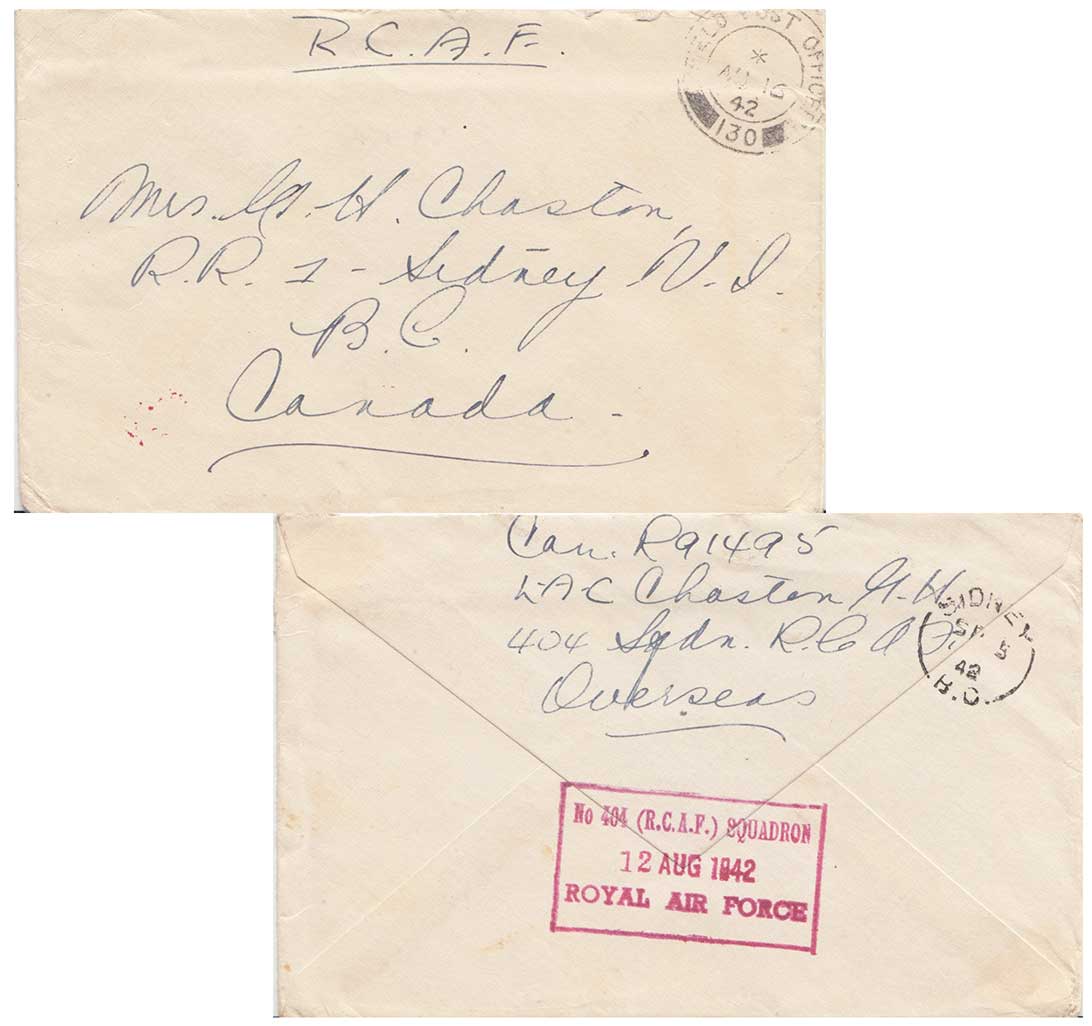 R.C.A.F.
FIELD POST OFFICE
*
AU 16
42
130
Mrs. G. H. Chaston,
R.R. 1 - Sidney V.I.
B.C.
Canada -
Can. R91495
LAC Chaston G.H.
404 Sqdn. R.C.A.F.
Overseas
SIDNEY
SP 5
42
B.C.
No 404 (R.C.A.F.) SQUADRON
12 AUG 1942
ROYAL AIR FORCE